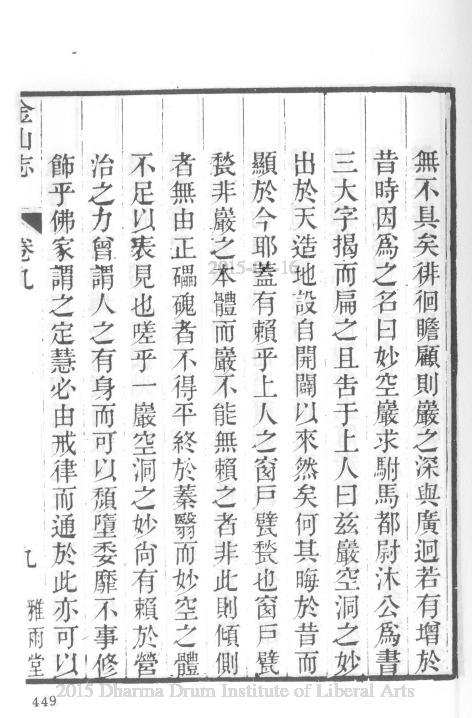 無不具矣徘徊瞻顧則巖之深與廣迥若有增於
昔時因爲之名曰妙空巖求駙馬都尉沐公爲書
三大字揭而扁之且告于上人曰兹巖空洞之妙
出於天造地設自開闢以來然矣何其晦於昔而
顯於今耶蓋有賴乎上人之窗戸甓甃也窗戸甓
甃非巖之本體而巖不能無賴之者非此則傾側
者無由正礧磈者不得平終於蓁翳而妙空之體
不足以表見也嗟乎一巖空洞之妙尙有賴於營
治之力曾謂人之有身而可以頽墮委靡不事修
飾乎佛家謂之定慧必由戒律而通於此亦可以
金山志 卷九 九 雅雨堂
2015-04-16
449
2015 Dharma Drum Institute of Liberal Arts